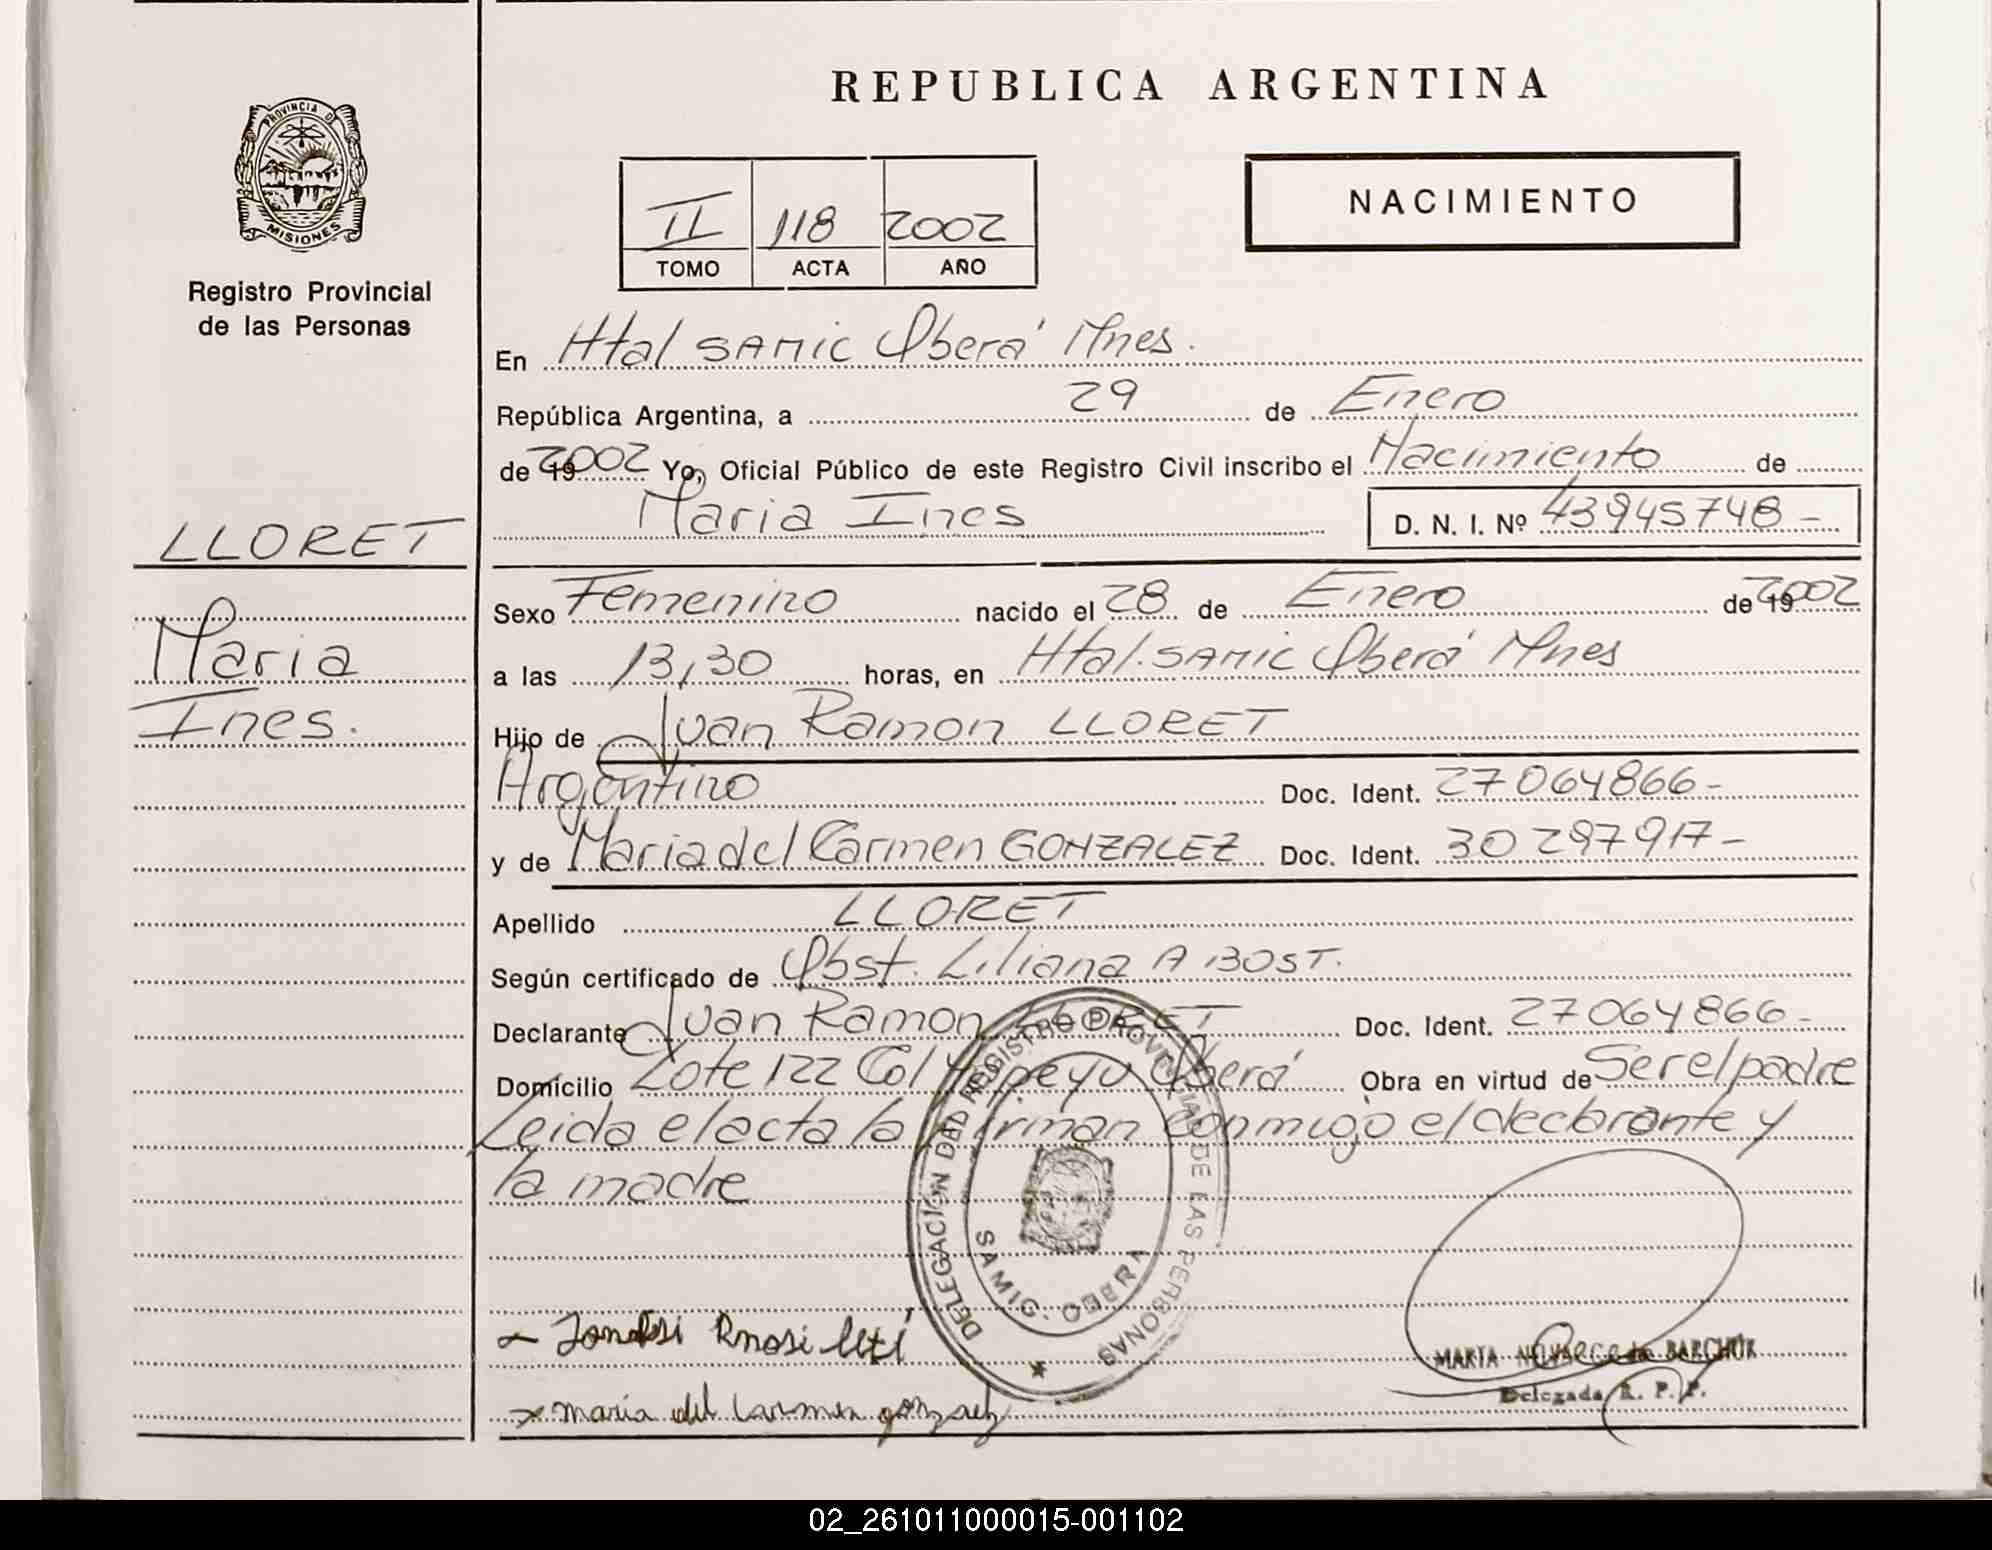 REPUBLICA ARGENTINA
PROVINCIA DE
MISIONES
Registro Provincial
de las Personas
II 118 2002
TOMO ACTA AÑO
NACIMIENTO
En Htal SAMIC Oberá Mnes.
República Argentina, a 29 de Enero
de 19 2002 Yo, Oficial Público de este Registro Civil inscribo el Nacimiento de
Maria Ines D. N. I. Nº 43945748-
LLORET
Maria
Ines.
Sexo Femenino nacido el 28 de Enero de 19 2002
a las 13,30 horas, en Htal. SAMIC Oberá Mnes
Hijo de Juan Ramon LLORET
Argentino Doc. Ident. 27064866-
y de Maria del Carmen GONZALEZ Doc. Ident. 30297917-
Apellido LLORET
Según certificado de Obst. Liliana A BOST.
Declarante Juan Ramon LLORET Doc. Ident. 27064866-
Domicilio Lote 122 Col Yapeyu Oberá Obra en virtud de Ser el padre
Leida el acta la firman conmigo el declarante y
la madre
DELEGACIÓN DAD REGISTRO PROVINCIAL DE LAS PERSONAS
SAMIC. OBERA
maria del Carmen gonzalez
MARTA DE BARCHUK
Delegada R. P. P.
02_261011000015-001102